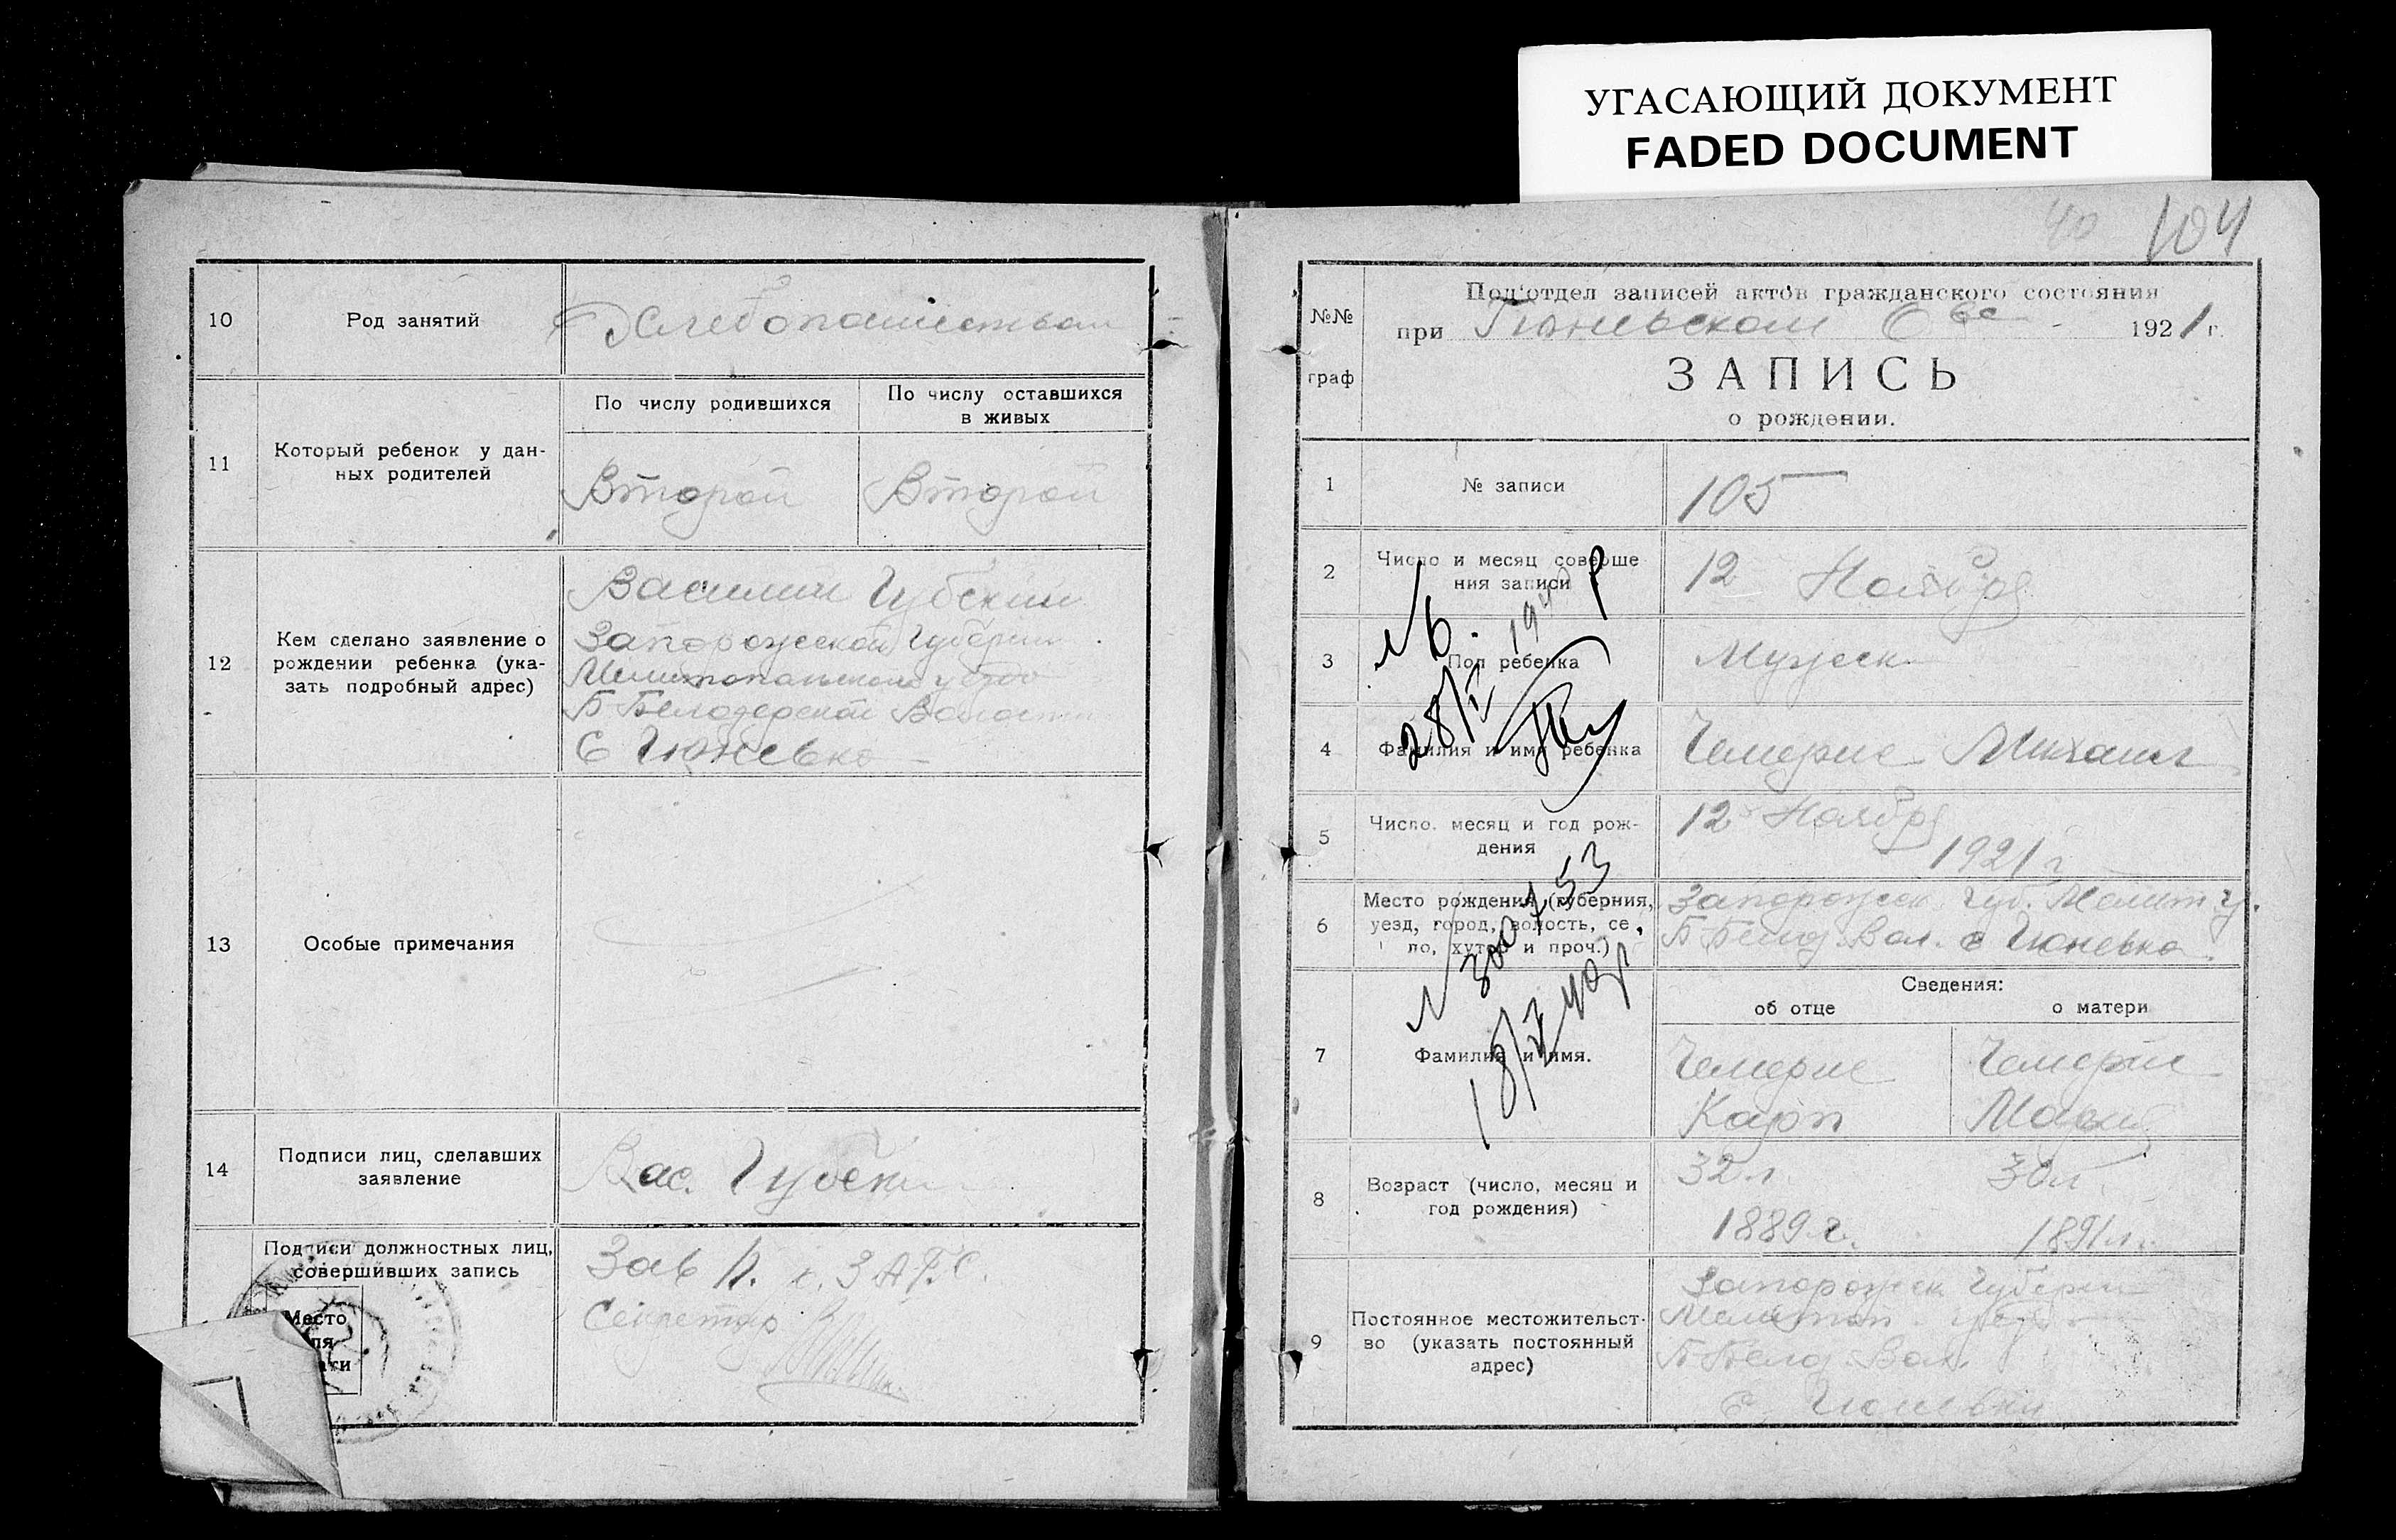 УГАСАЮЩИЙ ДОКУМЕНТ
FADED DOCUMENT
10
Род занятий
Хлебопашеством
11
Который ребенок у дан-
ных родителей
По числу родившихся
По числу оставшихся
в живых
Второй
Второй
12
Кем сделано заявление о
рождении ребенка (ука-
зать подробный адрес)
Василий Губский
Запорожской Губернии
Мелитопольского уезда
Б Белозерской Волости
С Гюневка
13
Особые примечания
14
Подписи лиц, сделавших
заявление
Вас. Губски
Подписи должностных лиц,
совершивших запись
Место
Зав п. о. ЗАГС.
Секретарь
40
104
№№
граф
Под'отдел записей актов гражданского состояния
при Гюневском 1921 г.
ЗАПИСЬ
о рождении.
1
№ записи
105
2
Число и месяц соверше
ния записи
12 Ноября
3
Пол ребенка
Мужск
4
Фамилия и имя ребенка
Чемерис Михаил
5
Число, месяц и год рож-
дения
12 Ноября
1921 г
6
Место рождения (губерния,
уезд, город, волость, се
ло, хутор и проч.)
Запорожск. Губ. Мелит у.
Б Белоз. Вол. с Гюневка.
Сведения:
об отце
о матери
7
Фамилия и имя.
Чемерис
Карп
Чемерис
Мария
8
Возраст (число, месяц и
год рождения)
32 л.
1889 г.
30 л
1891 г.
9
Постоянное местожительст-
во (указать постоянный
адрес)
Запорожск Губерни
Мелитоп уезд
Б Белоз. Вол.
с. Гюневки
28/I